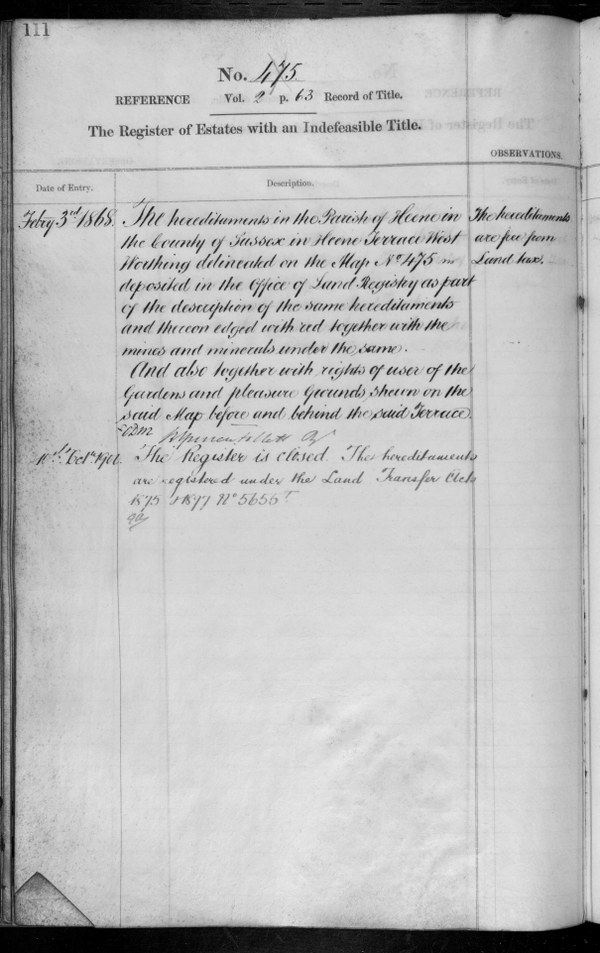 111
No. 475
REFERENCE Vol. 2 p. 63 Record of Title.
The Register of Estates with an Indefeasible Title.
OBSERVATIONS.
Date of Entry.
Description.
Febry 3rd 1868.
The hereditaments in the Parish of Heene in
the County of Sussex in Heene Terrace West
Worthing delineated on the Map No 475
deposited in the Office of Land Registry as part
of the description of the same hereditaments
and thereon edged with red together with the
mines and minerals under the same.
And also together with rights of user of the
Gardens and pleasure Grounds shewn on the
said Map before and behind the said Terrace.
The hereditaments
are free from
Land tax.
10th Octr 1901.
The Register is closed The hereditaments
are registered under the Land Transfer Acts
1875 & 1897 No 5656